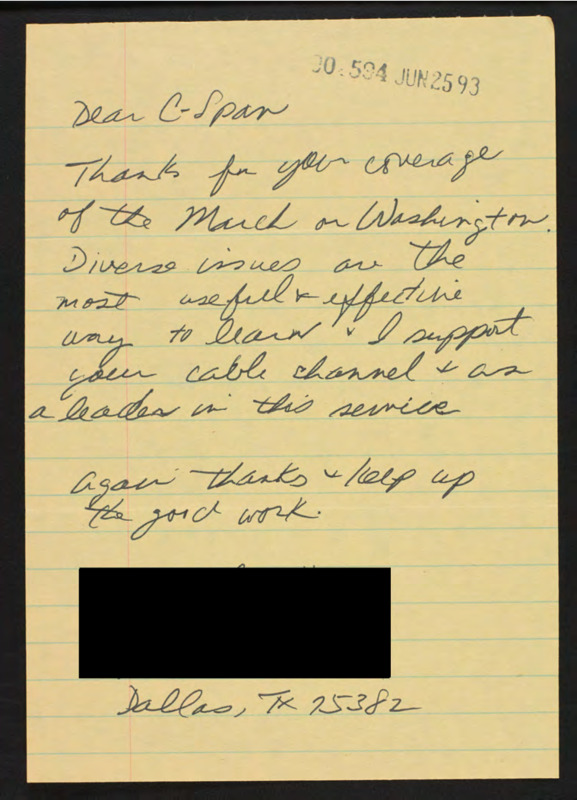 90.594 JUN 25 93
Dear C-Span
Thanks for your coverage
of the March on Washington.
Diverse issues are the
most useful & effective
way to learn & I support
your cable channel & as
a leader in this service
Again thanks & keep up
the good work.
Dallas, TX 75382